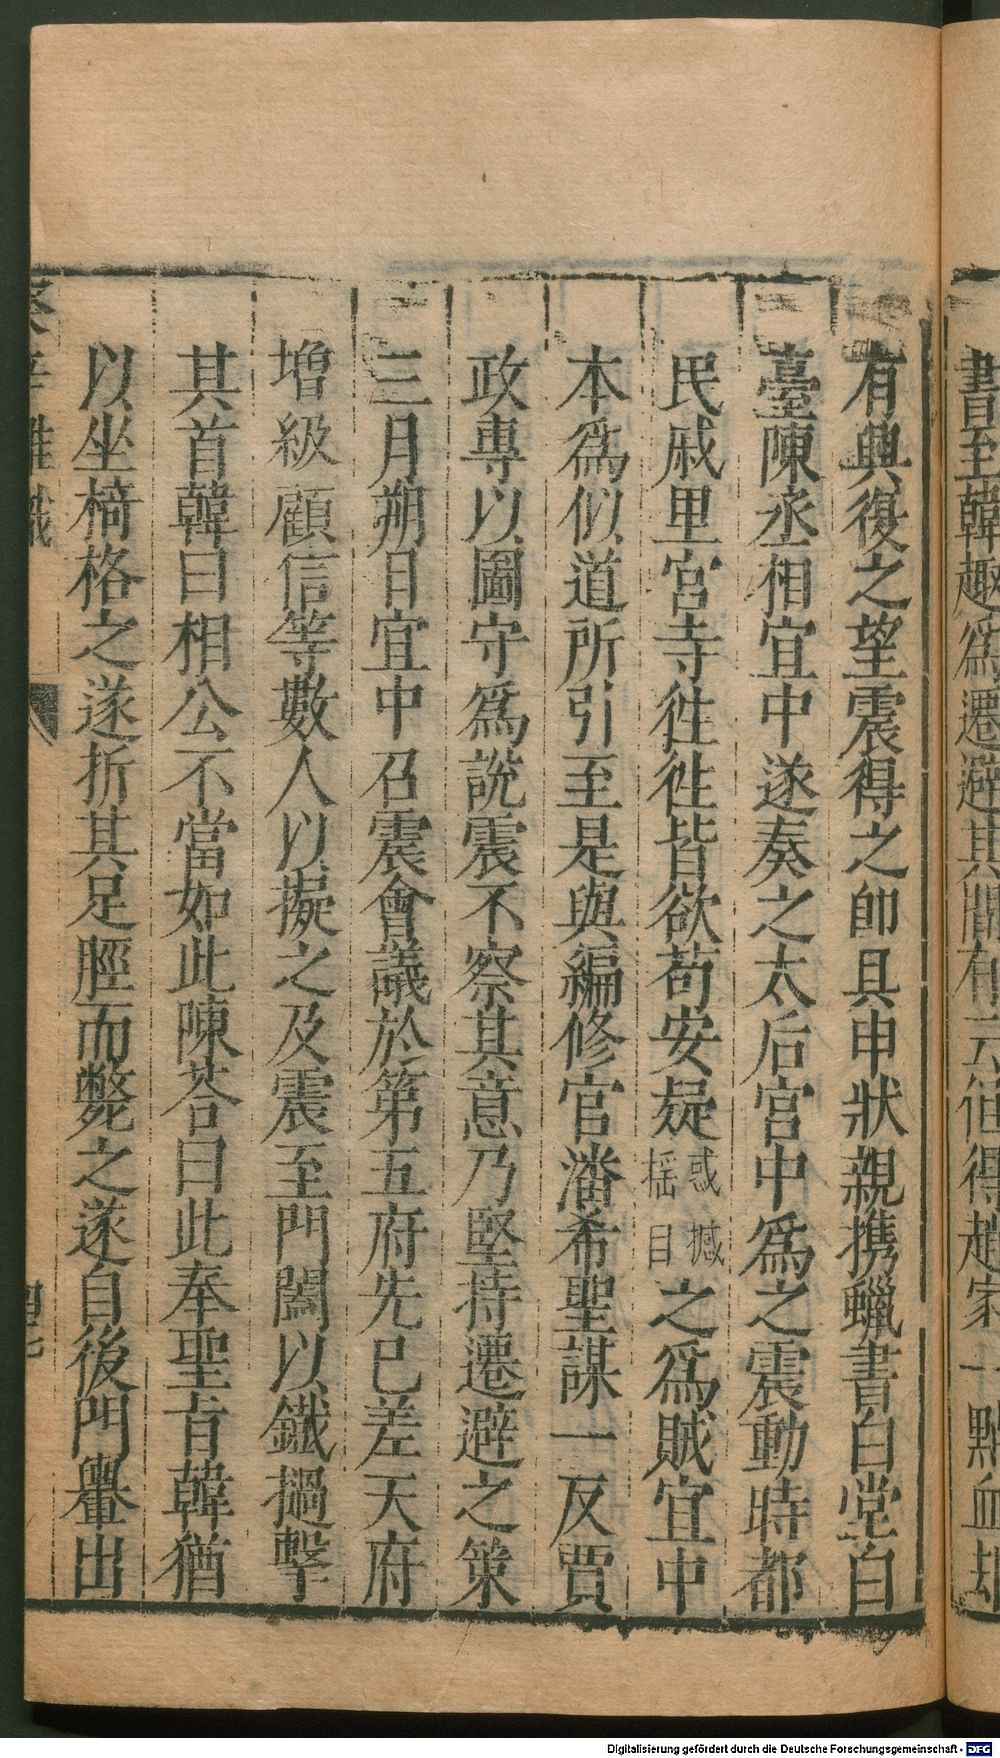 書至韓趣為遷避其間有云但得趙家一點血却
有興復之望震得之卽具申狀親携蠟書白堂自
臺陳丞相宜中遂奏之太后宮中為之震動時都
民戚里宮寺徃徃皆欲苟安疑惑撼揺目之為賊宜中
本為似道所引至是與編修官潘希聖謀一反賈
政專以圖守為說震不察其意乃堅持遷避之策
三月朔日宜中召震會議於第五府先已差天府
増級顧信等數人以擬之及震至門闔以鐵撾擊
其首韓曰相公不當如此陳荅曰此奉聖旨韓猶
以坐椅格之遂折其足脛而斃之遂自後門轝出
癸辛雜識
Digitalisierung gefördert durch die Deutsche Forschungsgemeinschaft - DFG